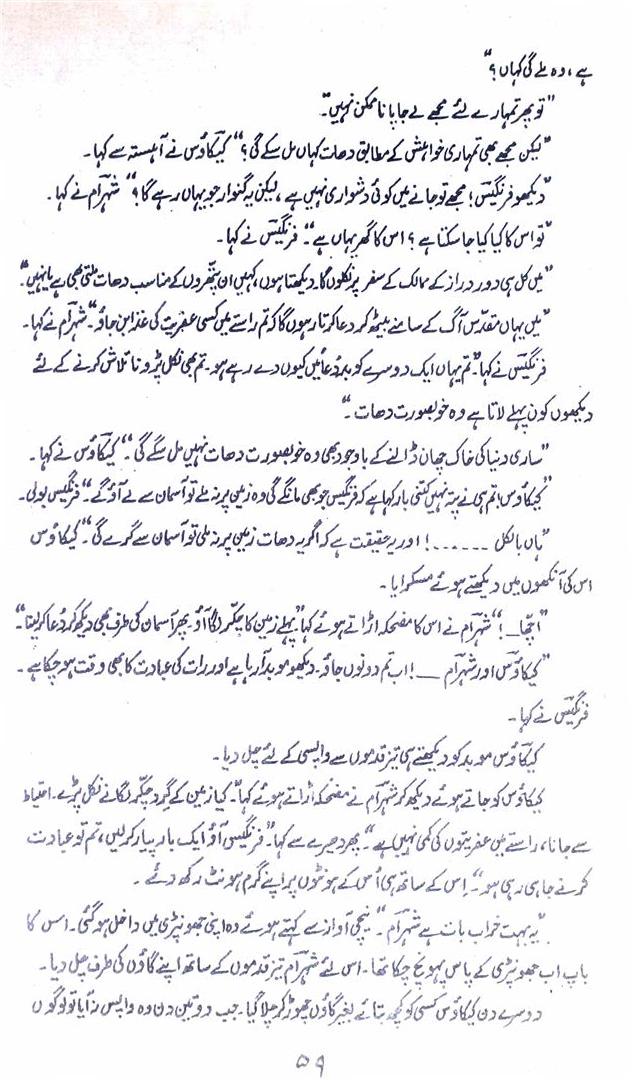 ہے، وہ ملے گی کہاں؟"
"تو پھر تمہارے لئے مجھے لے جا پانا ممکن نہیں۔"
"لیکن مجھے بھی تمہاری خواہش کے مطابق دھات کہاں مل سکے گی؟" کیکاؤس نے آہستہ سے کہا۔
"دیکھو فرنگیس! مجھے تو جانے میں کوئی دشواری نہیں ہے، لیکن یہ گنوار جو یہاں رہے گا؟" شہرام نے کہا۔
"تو اس کا کیا کیا جا سکتا ہے؟ اس کا گھر یہاں ہے"۔ فرنگیس نے کہا۔
"میں کل ہی دور دراز کے ممالک کے سفر پر نکلوں گا۔ دیکھتا ہوں، کہیں ان پتھروں کے مناسب دھات ملتی بھی ہے یا نہیں"۔
"میں یہاں مقدّس آگ کے سامنے بیٹھ کر دعا کرتا رہوں گا کہ تم راستے میں کسی عفریت کی غذا بن جاؤ۔" شہرام نے کہا۔
فرنگیس نے کہا۔ "تم یہاں ایک دوسرے کو بددُعائیں کیوں دے رہے ہو۔ تم بھی نکل پڑو نا تلاش کرنے کے لئے
دیکھوں کون پہلے لاتا ہے وہ خوبصورت دھات۔"
"ساری دنیا کی خاک چھان ڈالنے کے باوجود بھی وہ خوبصورت دھات نہیں مل سکے گی۔" کیکاؤس نے کہا۔
"کیکاؤس! تم ہی نے پتہ نہیں کتنی بار کہا ہے کہ فرنگیس جو بھی مانگے گی وہ زمین پر نہ ملے تو آسمان سے لے آؤ گے۔" فرنگیس بولی۔
"ہاں بالکل ......! اور یہ حقیقت ہے کہ اگر یہ دھات زمین پر نہ ملی تو آسمان سے گرے گی۔" کیکاؤس
اس کی آنکھوں میں دیکھتے ہوئے مسکرایا۔
"اچھا__!" شہرام نے اس کا مضحکہ اڑاتے ہوئے کہا "پہلے زمین کا چکّر لگا آؤ پھر آسمان کی طرف بھی دیکھ کر دُعا کر لینا"۔
"کیکاؤس اور شہرام __! اب تم دونوں جاؤ۔ دیکھو موبد آ رہا ہے اور رات کی عبادت کا بھی وقت ہو چکا ہے۔
فرنگیس نے کہا۔
کیکاؤس موبد کو دیکھتے ہی تیز قدموں سے واپسی کے لئے چل دیا۔
کیکاؤس کو جاتے ہوئے دیکھ کر شہرام نے مضحکہ اڑاتے ہوئے کہا۔ "کیا زمین کے گرد چکّر لگانے نکل پڑے۔ احتیاط
سے جانا، راستے میں عفریتوں کی کمی نہیں ہے"۔ پھر دھیرے سے کہا۔ "فرنگیس آؤ ایک بار پیار کر لیں، تم تو عبادت
کرنے جا ہی رہی ہو"۔ اس کے ساتھ ہی اُس کے ہونٹوں پر اپنے گرم ہونٹ رکھ دئے۔
"یہ بہت خراب بات ہے شہرام۔" نیچی آواز سے کہتے ہوئے وہ اپنی جھونپڑی میں داخل ہو گئی۔ اس کا
باپ اب جھونپڑی کے پاس پہونچ چکا تھا۔ اس لئے شہرام تیز قدموں کے ساتھ اپنے گاؤں کی طرف چل دیا۔
دوسرے دن کیکاؤس کسی کو کچھ بتائے بغیر گاؤں چھوڑ کر چلا گیا۔ جب دو تین دن وہ واپس نہ آیا تو لوگوں
۵۹